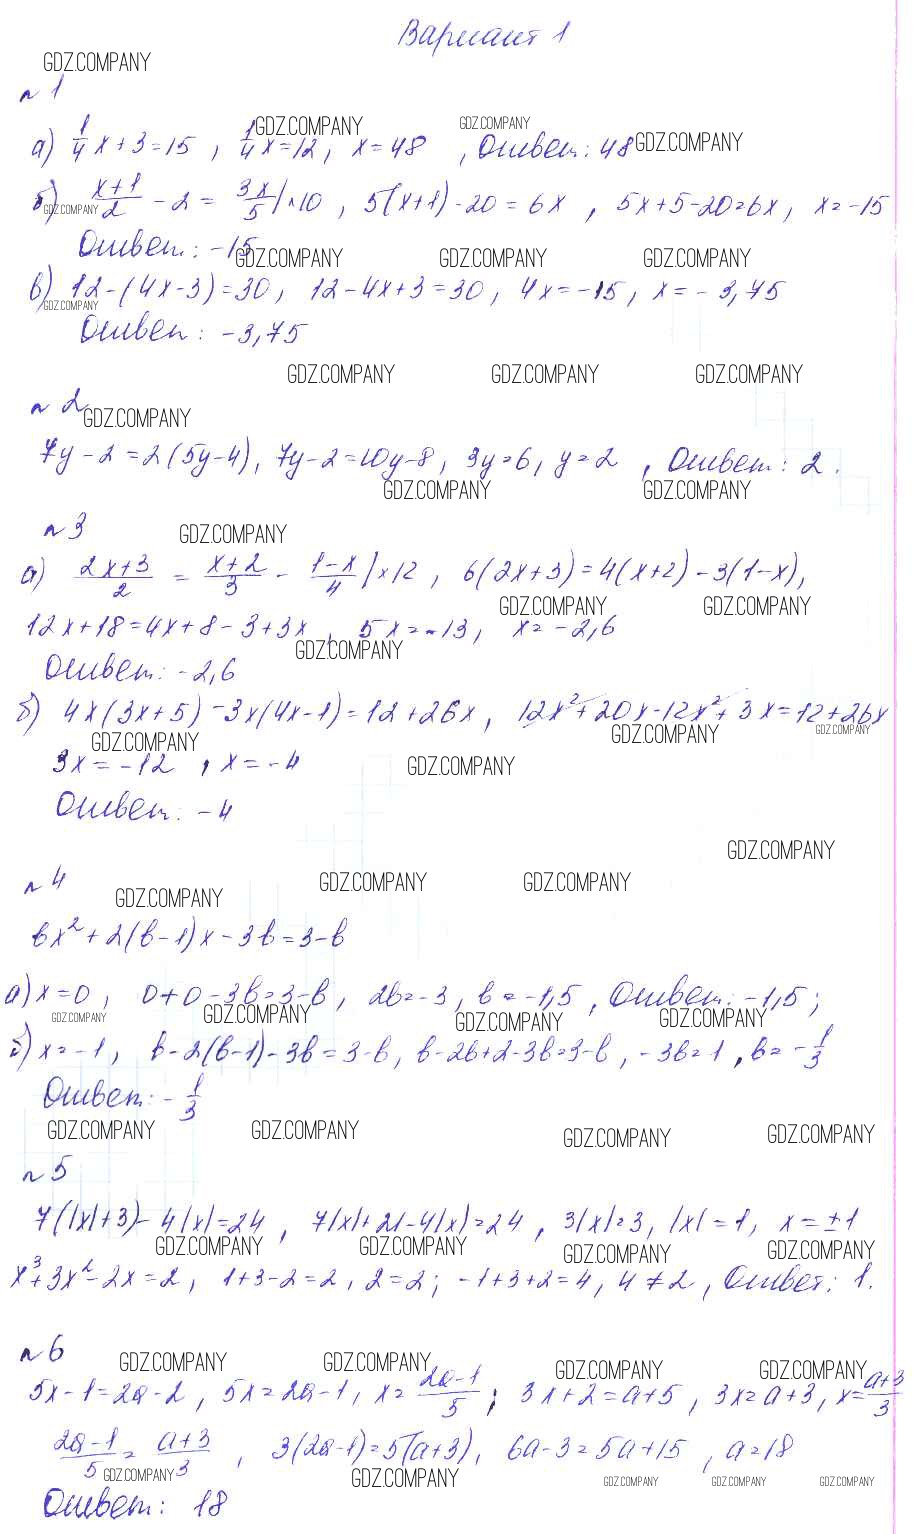 Вариант 1
GDZ.COMPANY
№1
GDZ.COMPANY GDZ.COMPANY
а) 1/4 x + 3 = 15 , 1/4 x = 12, x = 48 , Ответ: 48 GDZ.COMPANY
б) (x+1)/2 - 2 = 3x/5 | ×10 , 5(x+1) - 20 = 6x , 5x+5-20=6x, x = -15
GDZ.COMPANY
Ответ: -15
GDZ.COMPANY GDZ.COMPANY GDZ.COMPANY
в) 12-(4x-3)=30, 12-4x+3=30, 4x=-15, x=-3,75
GDZ.COMPANY
Ответ: -3,75
GDZ.COMPANY GDZ.COMPANY GDZ.COMPANY
№2
GDZ.COMPANY
7y-2=2(5y-4), 7y-2=10y-8, 3y=6, y=2 , Ответ: 2.
GDZ.COMPANY GDZ.COMPANY
№3 GDZ.COMPANY
а) (2x+3)/2 = (x+2)/3 - (1-x)/4 | ×12 , 6(2x+3)=4(x+2)-3(1-x),
GDZ.COMPANY GDZ.COMPANY
12x+18=4x+8-3+3x , 5x=-13, x=-2,6
GDZ.COMPANY
Ответ: -2,6
б) 4x(3x+5)-3x(4x-1)=12+26x, 12x²+20x-12x²+3x=12+26x
GDZ.COMPANY GDZ.COMPANY GDZ.COMPANY
3x=-12 , x=-4 GDZ.COMPANY
Ответ: -4
GDZ.COMPANY
№4 GDZ.COMPANY GDZ.COMPANY
GDZ.COMPANY
bx²+2(b-1)x-3b=3-b
а) x=0, 0+0-3b=3-b, 2b=-3, b=-1,5, Ответ: -1,5;
GDZ.COMPANY GDZ.COMPANY GDZ.COMPANY GDZ.COMPANY
б) x=-1, b-2(b-1)-3b=3-b, b-2b+2-3b=3-b, -3b=1, b=-1/3
Ответ: -1/3
GDZ.COMPANY GDZ.COMPANY GDZ.COMPANY GDZ.COMPANY
№5
7(|x|+3)-4|x|=24 , 7|x|+21-4|x|=24 , 3|x|=3, |x|=1, x=±1
GDZ.COMPANY GDZ.COMPANY GDZ.COMPANY GDZ.COMPANY
x³+3x²-2x=2, 1+3-2=2, 2=2; -1+3+2=4, 4≠2, Ответ: 1.
№6
GDZ.COMPANY GDZ.COMPANY GDZ.COMPANY GDZ.COMPANY
5x-1=2a-2, 5x=2a-1, x=(2a-1)/5 ; 3x+2=a+5, 3x=a+3, x=(a+3)/3
(2a-1)/5 = (a+3)/3 , 3(2a-1)=5(a+3), 6a-3=5a+15, a=18
GDZ.COMPANY GDZ.COMPANY GDZ.COMPANY GDZ.COMPANY GDZ.COMPANY
Ответ: 18